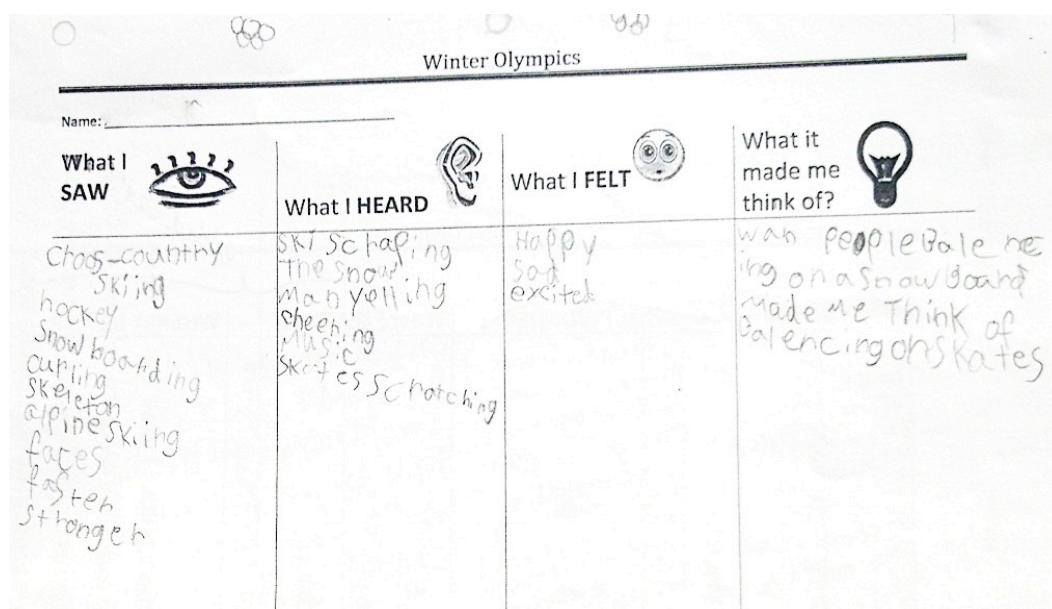 Winter Olympics
Name:
What I
SAW
What I HEARD
What I FELT
What it
made me
think of?
Croos-country
skiing
hockey
snowboarding
curling
skeleton
alpine skiing
faces
faster
stronger
ski scraping
the snow
man yelling
cheering
Music
skates scratching
Happy
Sad
excited
wan people Bale nc
ing on a snowBoard
Made Me Think of
Balencing on skates